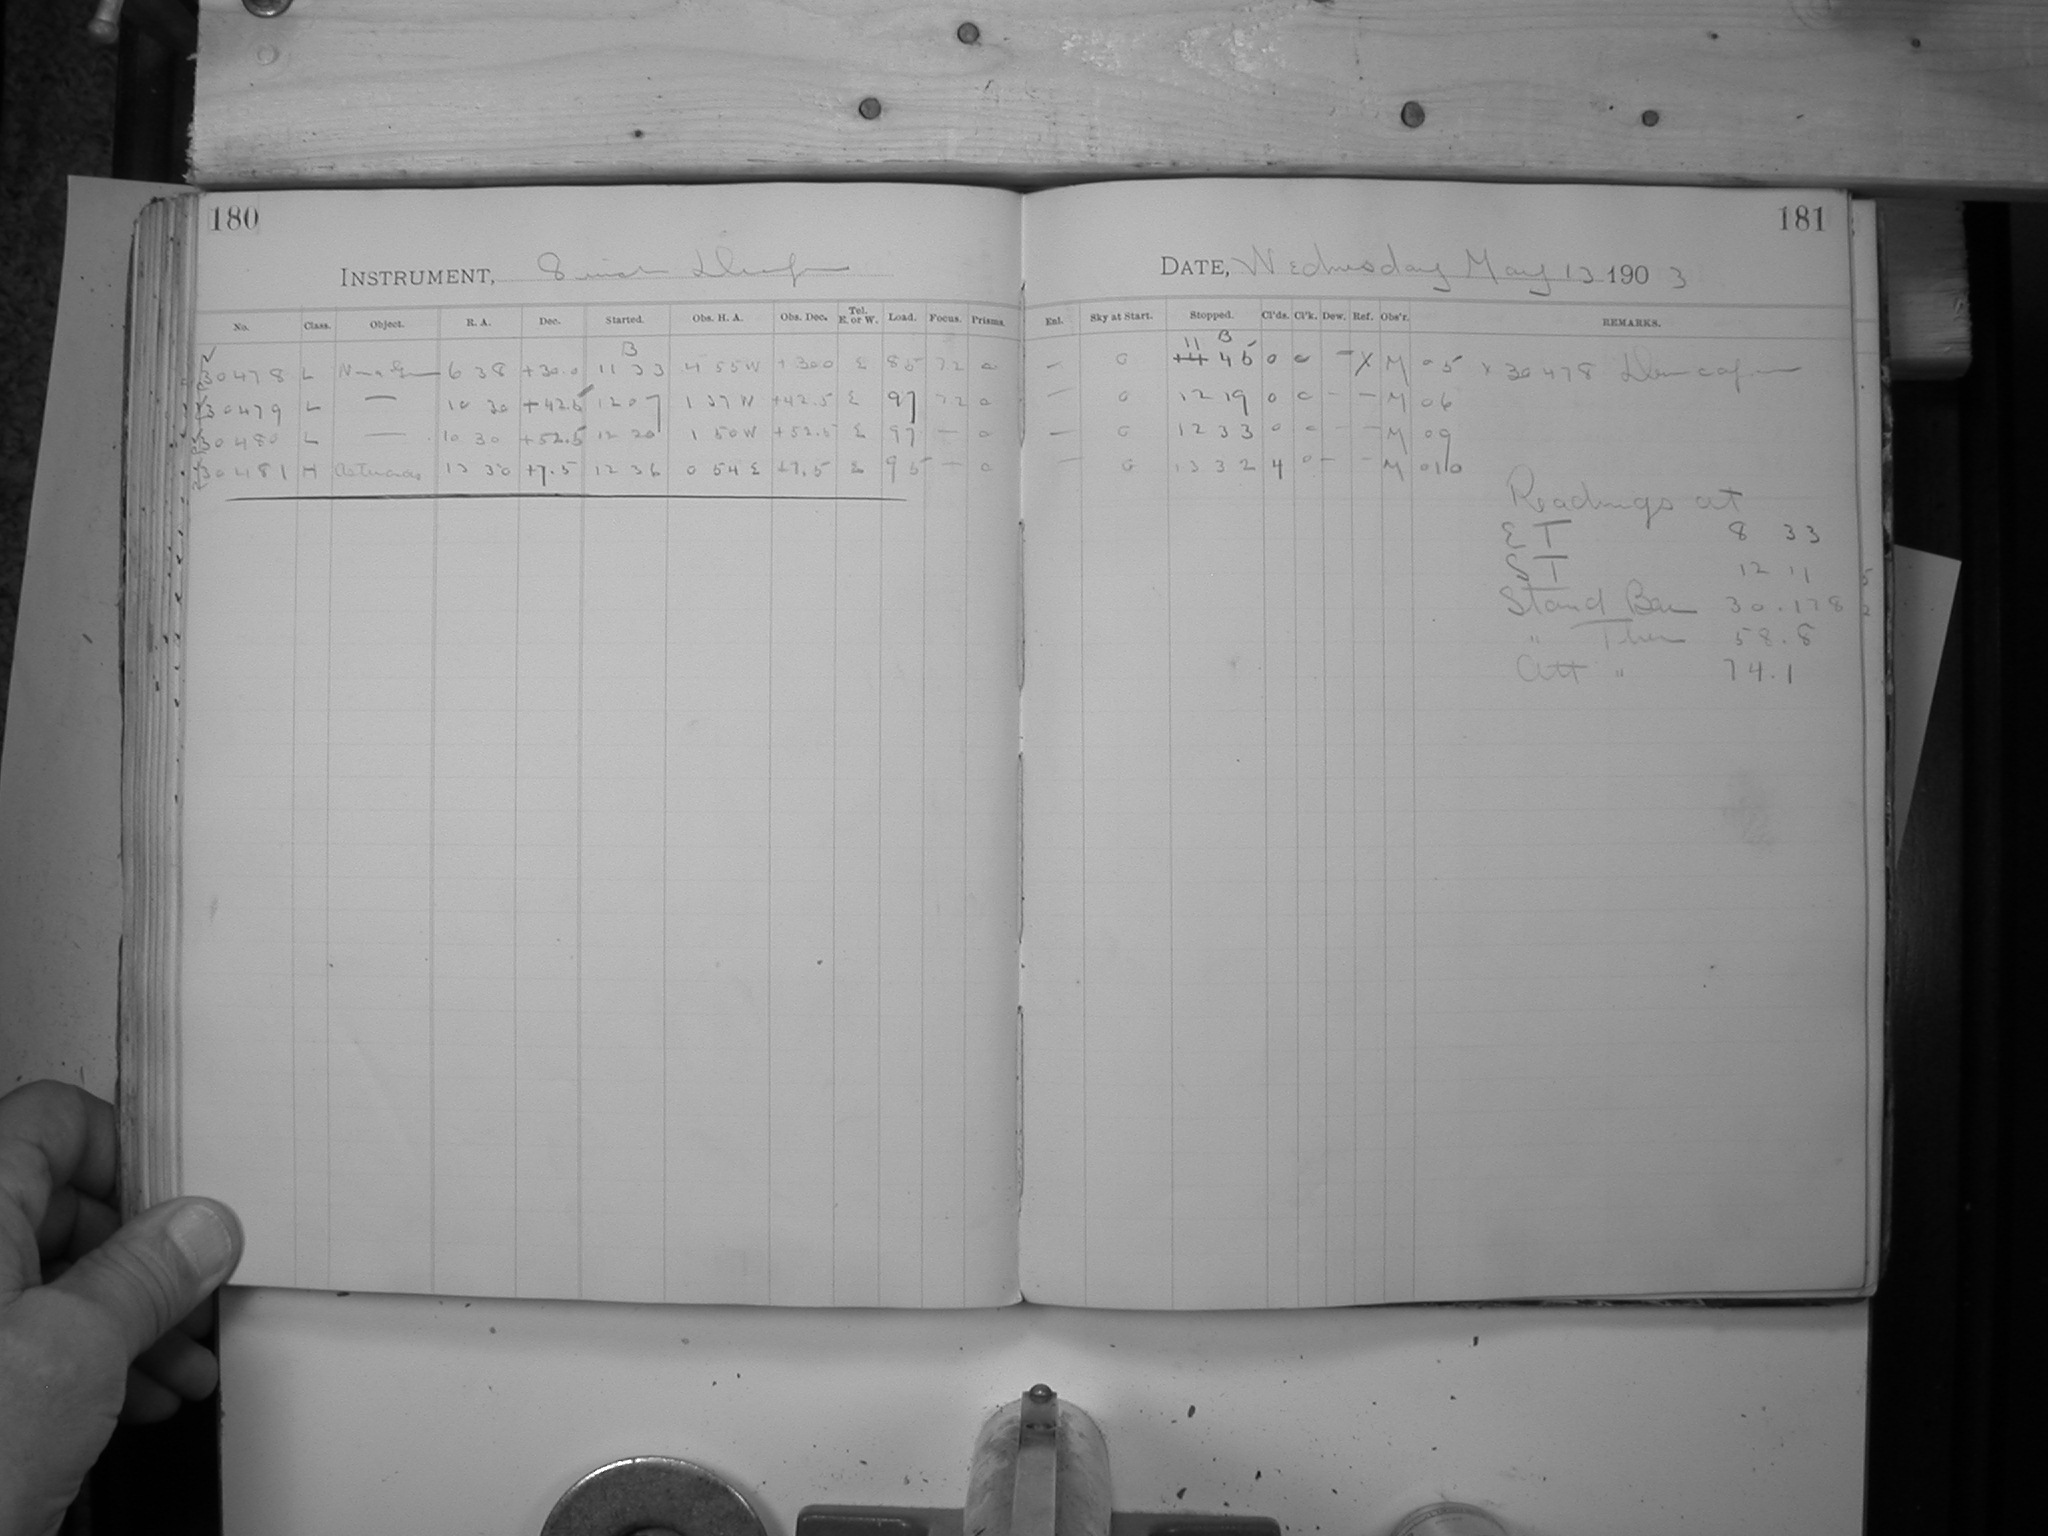 180
INSTRUMENT, 8 inch Draper
No. Class. Object. R. A. Dec. Started. Obs. H. A. Obs. Dec. Tel. E. or W. Load. Focus. Prisms.
B
30478 L 6 38 +30.0 11 33 4 55 W +30.0 E 85 72 0
30479 L — 10 30 +42.5 12 07 1 37 W +42.5 E 97 72 0
30480 L — 10 30 +52.5 12 20 1 50 W +52.5 E 97 — 0
30481 H 13 30 +7.5 12 36 0 54 E +7.5 E 95 — 0
181
DATE, Wednesday May 13 1903
Enl. Sky at Start. Stopped. Cl'ds. Cl'k. Dew. Ref. Obs'r. REMARKS.
11 B
— 0 46 0 0 – X M 05 x 30478
— 0 12 19 0 0 – – M 06
— 0 12 33 0 0 – – M 09
— 0 13 32 4 0 – – M 010
Readings at
E T 8 33
S T 12 11
Stand Bar 30.178
" Ther 58.8
Att " 74.1